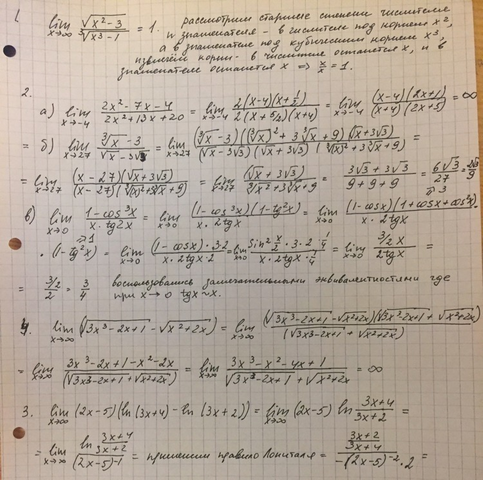 1 lim x→∞ √(x²-3) / ∛(x³-1) = 1. рассмотрим старшие степени числителя
и знаменателя - в числителе под корнем x²,
а в знаменателе под кубическим корнем x³,
извлечём корни - в числителе останется x, и в
знаменателе останется x ⇒ x/x = 1.
2.
а) lim x→-4 (2x²-7x-4)/(2x²+13x+20) = lim x→-4 2(x-4)(x+½)/(2(x+5/2)(x+4)) = lim x→-4 (x-4)(2x+1)/((x+4)(2x+5)) = ∞
= б) lim x→27 (∛x-3)/(√x-3√3) = lim x→27 (∛x-3)((∛x)²+3∛x+9)(√x+3√3)/((√x-3√3)(√x+3√3)(∛x²+3∛x+9)) =
= lim x→27 (x-27)(√x+3√3)/((x-27)(∛x²+3∛x+9)) = lim x→27 (√x+3√3)/(∛x²+3∛x+9) = (3√3+3√3)/(9+9+9) = 6√3/27 = 2√3/9
в) lim x→0 (1-cos³x)/(x·tg2x) = lim x→0 (1-cos³x)(1-tg²x)/(x·2tgx) = lim x→0 (1-cosx)(1+cosx+cos²x)/(x·2tgx) ·
·(1-tg²x) = lim x→0 (1-cosx)·3·2/(x·2tgx·2) = lim x→0 sin²x/2·3·2·¼/(x·2tgx·¼) = lim x→0 3/2x/2tgx =
= 3/2/2 = 3/4 воспользовались замечательными эквивалентностями где
при x→0 tgx~x.
4. lim x→∞ (√(3x³-2x+1) - √(x²+2x)) = lim x→∞ (√(3x³-2x+1) - √(x²+2x))(√(3x³-2x+1) + √(x²+2x))/(√(3x³-2x+1) + √(x²+2x)) =
= lim x→∞ (3x³-2x+1-x²-2x)/(√(3x³-2x+1) + √(x²+2x)) = lim x→∞ (3x³-x²-4x+1)/(√(3x³-2x+1) + √(x²+2x)) = ∞
3. lim x→∞ (2x-5)(ln(3x+4) - ln(3x+2)) = lim x→∞ (2x-5) ln (3x+4)/(3x+2) =
= lim x→∞ ln (3x+4)/(3x+2) / (2x-5)⁻¹ = применим правило Лопиталя = (3x+2)/(3x+4) / -(2x-5)⁻²·2 =